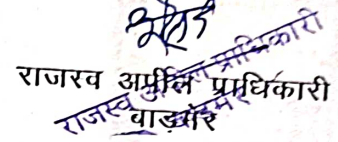 राजरव अपील प्राधिकारी
बाड़मेर
राजस्व अपील प्राधिकारी
बाड़मेर